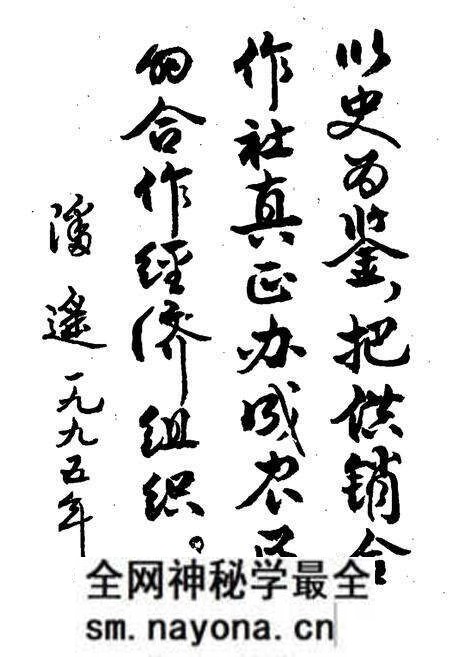 以史为鉴，把供销合
作社真正办成农民
的合作经济组织。
潘遥
一九九五年
全网神秘学最全
sm.nayona.cn